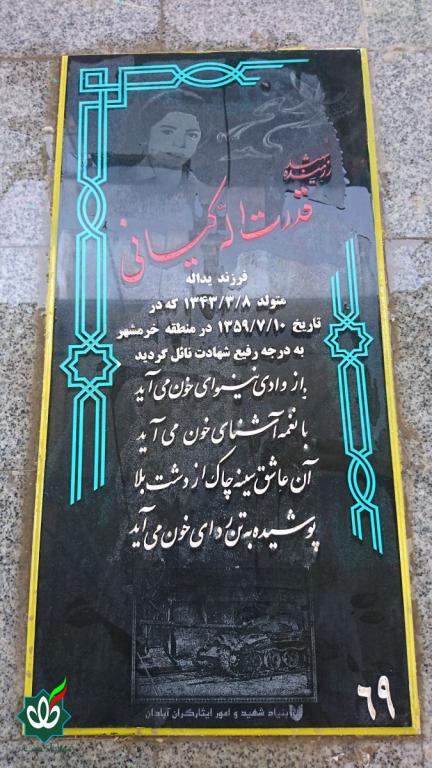 رزمنده شهید
قدرت اله کیانی
فرزند یداله
متولد ۱۳۴۳/۳/۸ که در
تاریخ ۱۳۵۹/۷/۱۰ در منطقه خرمشهر
به درجه رفیع شهادت نائل گردید
باز وادی نینوای خون می آید
با نغمه آشنای خون می آید
آن عاشق سینه چاک از دشت بلا
پوشیده به تن ردای خون می آید
بنیاد شهید و امور ایثارگران آبادان
۶۹